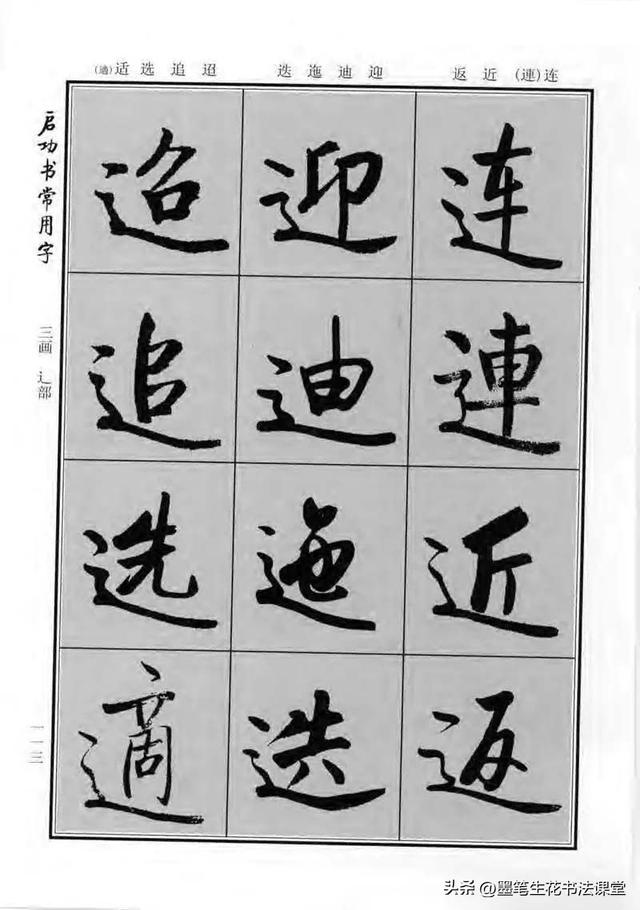 连(連)近返 迎迪迤迭 迢追选适(適)
启功书常用字
三画 辶部
连連近返
迎迪迤迭
迢追选適
一一三
头条 @墨笔生花书法课堂